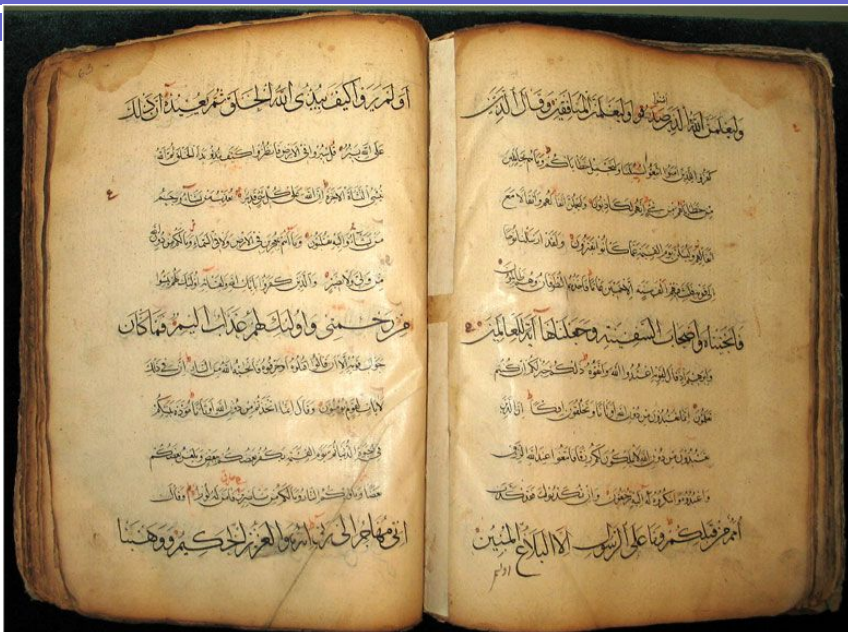 وليعلمن الله الذين صدقوا وليعلمن المنافقين وقال الذين
كفروا للذين امنوا اتبعوا سبيلنا ولنحمل خطاياكم وما هم بحاملين
من خطاياهم من شئ انهم لكاذبون وليحملن اثقالهم واثقالا مع
اثقالهم وليسئلن يوم القيمة عما كانوا يفترون ولقد ارسلنا نوحا
الى قومه فلبث فيهم الف سنة الا خمسين عاما فاخذهم الطوفان وهم ظالمون
فانجيناه واصحاب السفينة وجعلناها آية للعالمين
وابرهيم اذ قال لقومه اعبدوا الله واتقوه ذلكم خير لكم ان كنتم
تعلمون انما تعبدون من دون الله اوثانا وتخلقون افكا ان الذين
تعبدون من دون الله لا يملكون لكم رزقا فابتغوا عند الله الرزق
واعبدوه واشكروا له اليه ترجعون وان تكذبوا فقد كذب
امم من قبلكم وما على الرسول الا البلاغ المبين
اولم
اولم يروا كيف يبدئ الله الخلق ثم يعيده ان ذلك
على الله يسير قل سيروا فى الارض فانظروا كيف بدأ الخلق ثم الله
ينشئ النشأة الاخرة ان الله على كل شئ قدير يعذب من يشاء ويرحم
من يشاء واليه تقلبون وما انتم بمعجزين فى الارض ولا فى السماء وما لكم من دون الله
من ولى ولا نصير والذين كفروا بايات الله ولقائه اولئك يئسوا
من رحمتى واولئك لهم عذاب اليم فما كان
جواب قومه الا ان قالوا اقتلوه او حرقوه فانجيه الله من النار ان فى ذلك
لايات لقوم يؤمنون وقال انما اتخذتم من دون الله اوثانا مودة بينكم
فى الحيوة الدنيا ثم يوم القيمة يكفر بعضكم ببعض ويلعن بعضكم
بعضا ومأويكم النار وما لكم من ناصرين فامن له لوط وقال
انى مهاجر الى ربى انه هو العزيز الحكيم ووهبنا